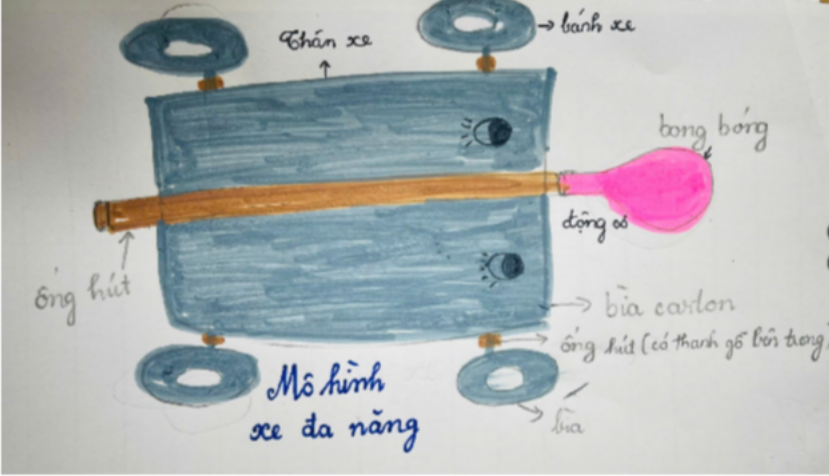 Thân xe
bánh xe
bong bóng
động cơ
ống hút
bìa carton
ống hút (có thanh gỗ bên trong)
Mô hình
xe đa năng
bìa